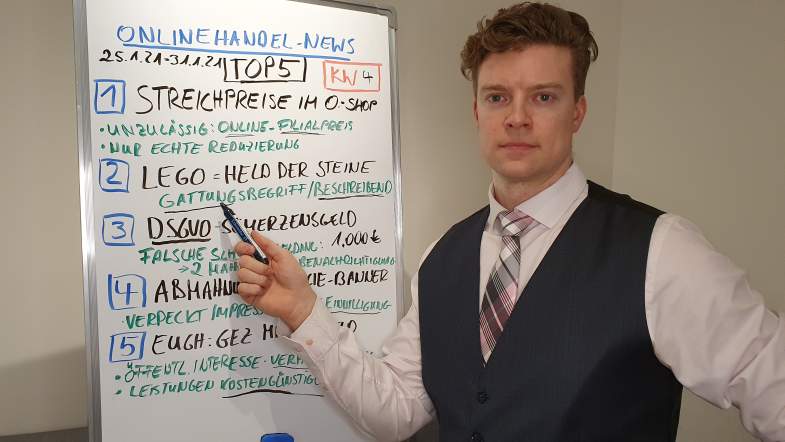 ONLINEHANDEL-NEWS
25.1.21-31.1.21 TOP5 KW 4
1 STREICHPREISE IM O.-SHOP
• UNZULÄSSIG: ONLINE-FILIALPREIS
• NUR ECHTE REDUZIERUNG
2 LEGO = HELD DER STEINE
GATTUNGSBEGRIFF/BESCHREIBEND
3 DSGVO-SCHMERZENSGELD
FALSCHE 1.000€
→ 2 BENACHRICHTIGUNG
4 -BANNER
• VERDECKT EINWILLIGUNG
5 EUGH: GEZ
• ÖFFENTL. INTERESSE
• LEISTUNGEN KOSTENGÜNSTIG